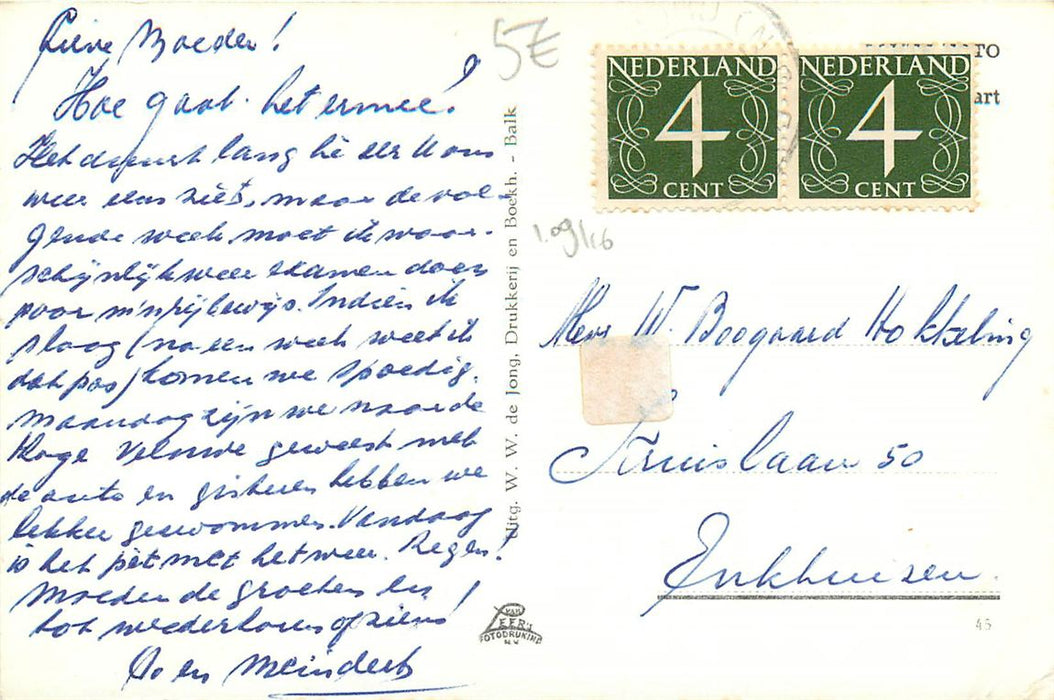 Lieve Moeder!
Hoe gaat het ermee?
Het duurt lang hè eer U ons
weer eens ziet, maar de vol-
gende week moet ik waar-
schijnlijk weer examen doen
voor m'n rijbewijs. Indien ik
slaag (na een week weet ik
dat pas) komen we spoedig.
Maandag zijn we naar de
Hoge Veluwe geweest met
de auto en gisteren hebben we
lekker gezwommen. Vandaag
is het pèt met het weer. Regen!
Moeder de groeten en
tot wederhoren of ziens!
en Meindert
5€
1.09/16
Uitg. W. W. de Jong, Drukkerij en Boekh. - Balk
VAN LEER'S
FOTODRUKIND
N.V.
NEDERLAND
4
CENT
NEDERLAND
4
CENT
TO
art
Mevr W. Boogaard Hokkeling
Kruislaan 50
Enkhuizen.
45